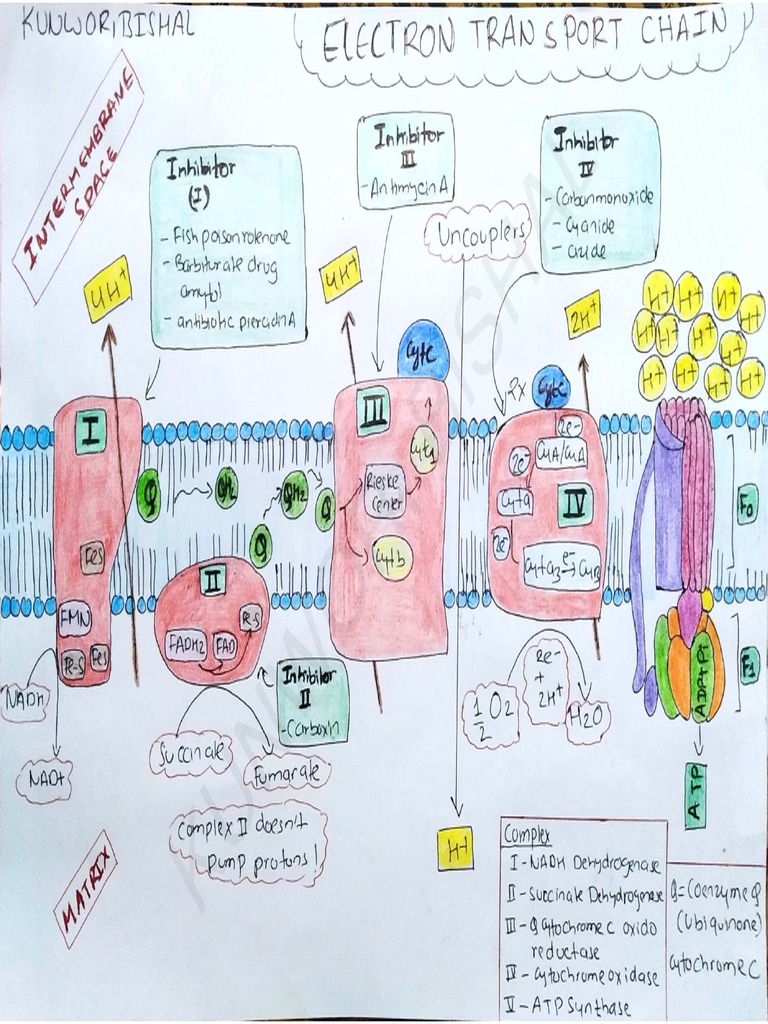 KUNWOR, BISHAL
ELECTRON TRANSPORT CHAIN
INTERMEMBRANE
SPACE
Inhibitor
(I)
- Fish poison rotenone
- Barbiturate drug
amytol
- antibiotic piercidin A
Inhibitor
III
- Antimycin A
Inhibitor
IV
- Carbonmonoxide
- Cyanide
- azide
Uncouplers
4H+
4H+
2H+
H+
H+
H+
H+
H+
H+
H+
H+
H+
H+
H+
H+
I
FeS
FMN
Fe-S
FeS
NADH
NAD+
Q
QH2
Q
QH2
Q
II
FADH2
FAD
Fe-S
Inhibitor
II
- Carboxin
Succinate
Fumarate
Complex II doesn't
pump protons!
III
Cyt C
Cyt c1
Rieske
Center
Cyt b
2x
Cyt C
2e-
CuA/CuA
2e-
Cyt a
IV
2e-
Cyt a3
e-
CuB
1/2 O2
2e-
+
2H+
H2O
H+
F0
F1
ADP+Pi
ATP
MATRIX
Complex
I - NADH Dehydrogenase
II - Succinate Dehydrogenase
III - Q Cytochrome C oxido
reductase
IV - Cytochrome oxidase
V - ATP Synthase
Q = Coenzyme Q
(Ubiquinone)
Cytochrome C
KUNWOR, BISHAL